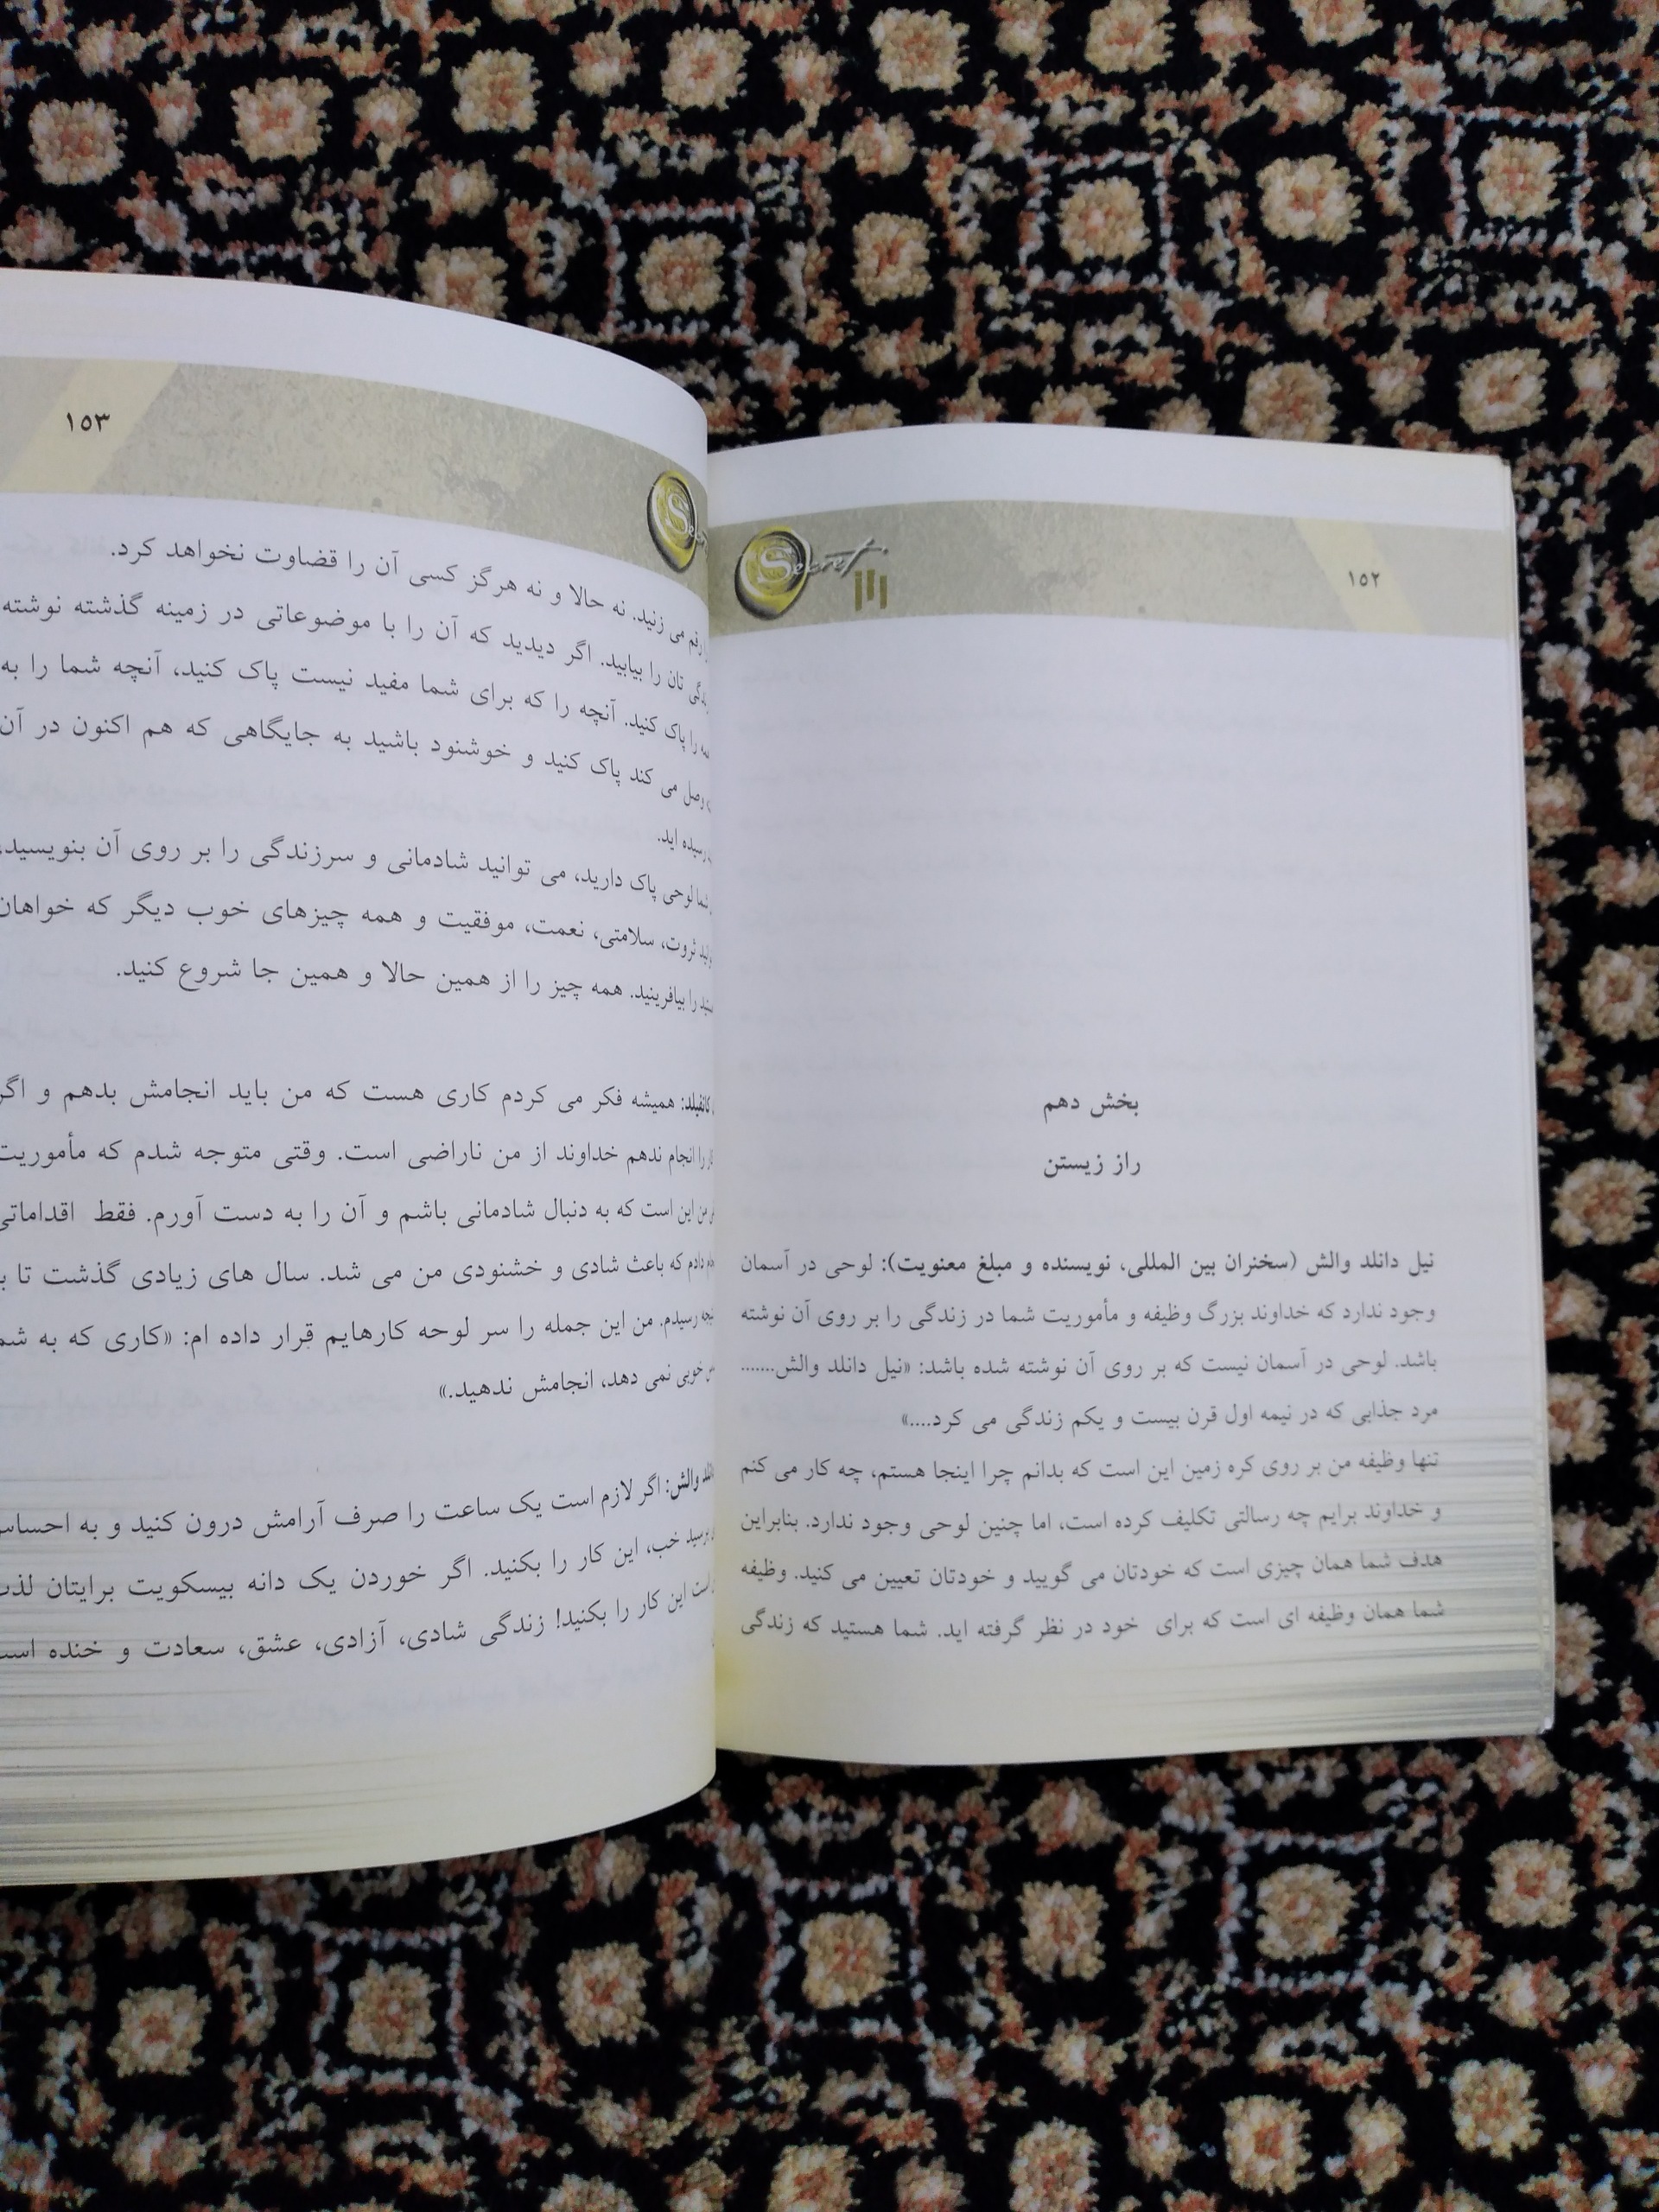 ۱۵۲
Secret
راز
بخش دهم
راز زیستن
نیل دانلد والش (سخنران بین المللی، نویسنده و مبلغ معنویت): لوحی در آسمان
وجود ندارد که خداوند بزرگ وظیفه و مأموریت شما در زندگی را بر روی آن نوشته
باشد. لوحی در آسمان نیست که بر روی آن نوشته شده باشد: «نیل دانلد والش.......
مرد جذابی که در نیمه اول قرن بیست و یکم زندگی می کرد....»
تنها وظیفه من بر روی کره زمین این است که بدانم چرا اینجا هستم، چه کار می کنم
و خداوند برایم چه رسالتی تکلیف کرده است، اما چنین لوحی وجود ندارد. بنابراین
هدف شما همان چیزی است که خودتان می گویید و خودتان تعیین می کنید. وظیفه
شما همان وظیفه ای است که برای خود در نظر گرفته اید. شما هستید که زندگی
۱۵۳
رقم می زنید. نه حالا و نه هرگز کسی آن را قضاوت نخواهد کرد.
تان را بیابید. اگر دیدید که آن را با موضوعاتی در زمینه گذشته نوشته
را پاک کنید. آنچه را که برای شما مفید نیست پاک کنید، آنچه شما را به
وصل می کند پاک کنید و خوشنود باشید به جایگاهی که هم اکنون در آن
رسیده اید.
شما لوحی پاک دارید، می توانید شادمانی و سرزندگی را بر روی آن بنویسید،
ثروت، سلامتی، نعمت، موفقیت و همه چیزهای خوب دیگر که خواهان
را بیافرینید. همه چیز را از همین حالا و همین جا شروع کنید.
کانفیلد: همیشه فکر می کردم کاری هست که من باید انجامش بدهم و اگر
را انجام ندهم خداوند از من ناراضی است. وقتی متوجه شدم که مأموریت
من این است که به دنبال شادمانی باشم و آن را به دست آورم. فقط اقداماتی
دادم که باعث شادی و خشنودی من می شد. سال های زیادی گذشت تا
رسیدم. من این جمله را سر لوحه کارهایم قرار داده ام: «کاری که به
خوبی نمی دهد، انجامش ندهید.»
والش: اگر لازم است یک ساعت را صرف آرامش درون کنید و به
برسید خب، این کار را بکنید. اگر خوردن یک دانه بیسکویت برایتان
است این کار را بکنید! زندگی شادی، آزادی، عشق، سعادت و خنده